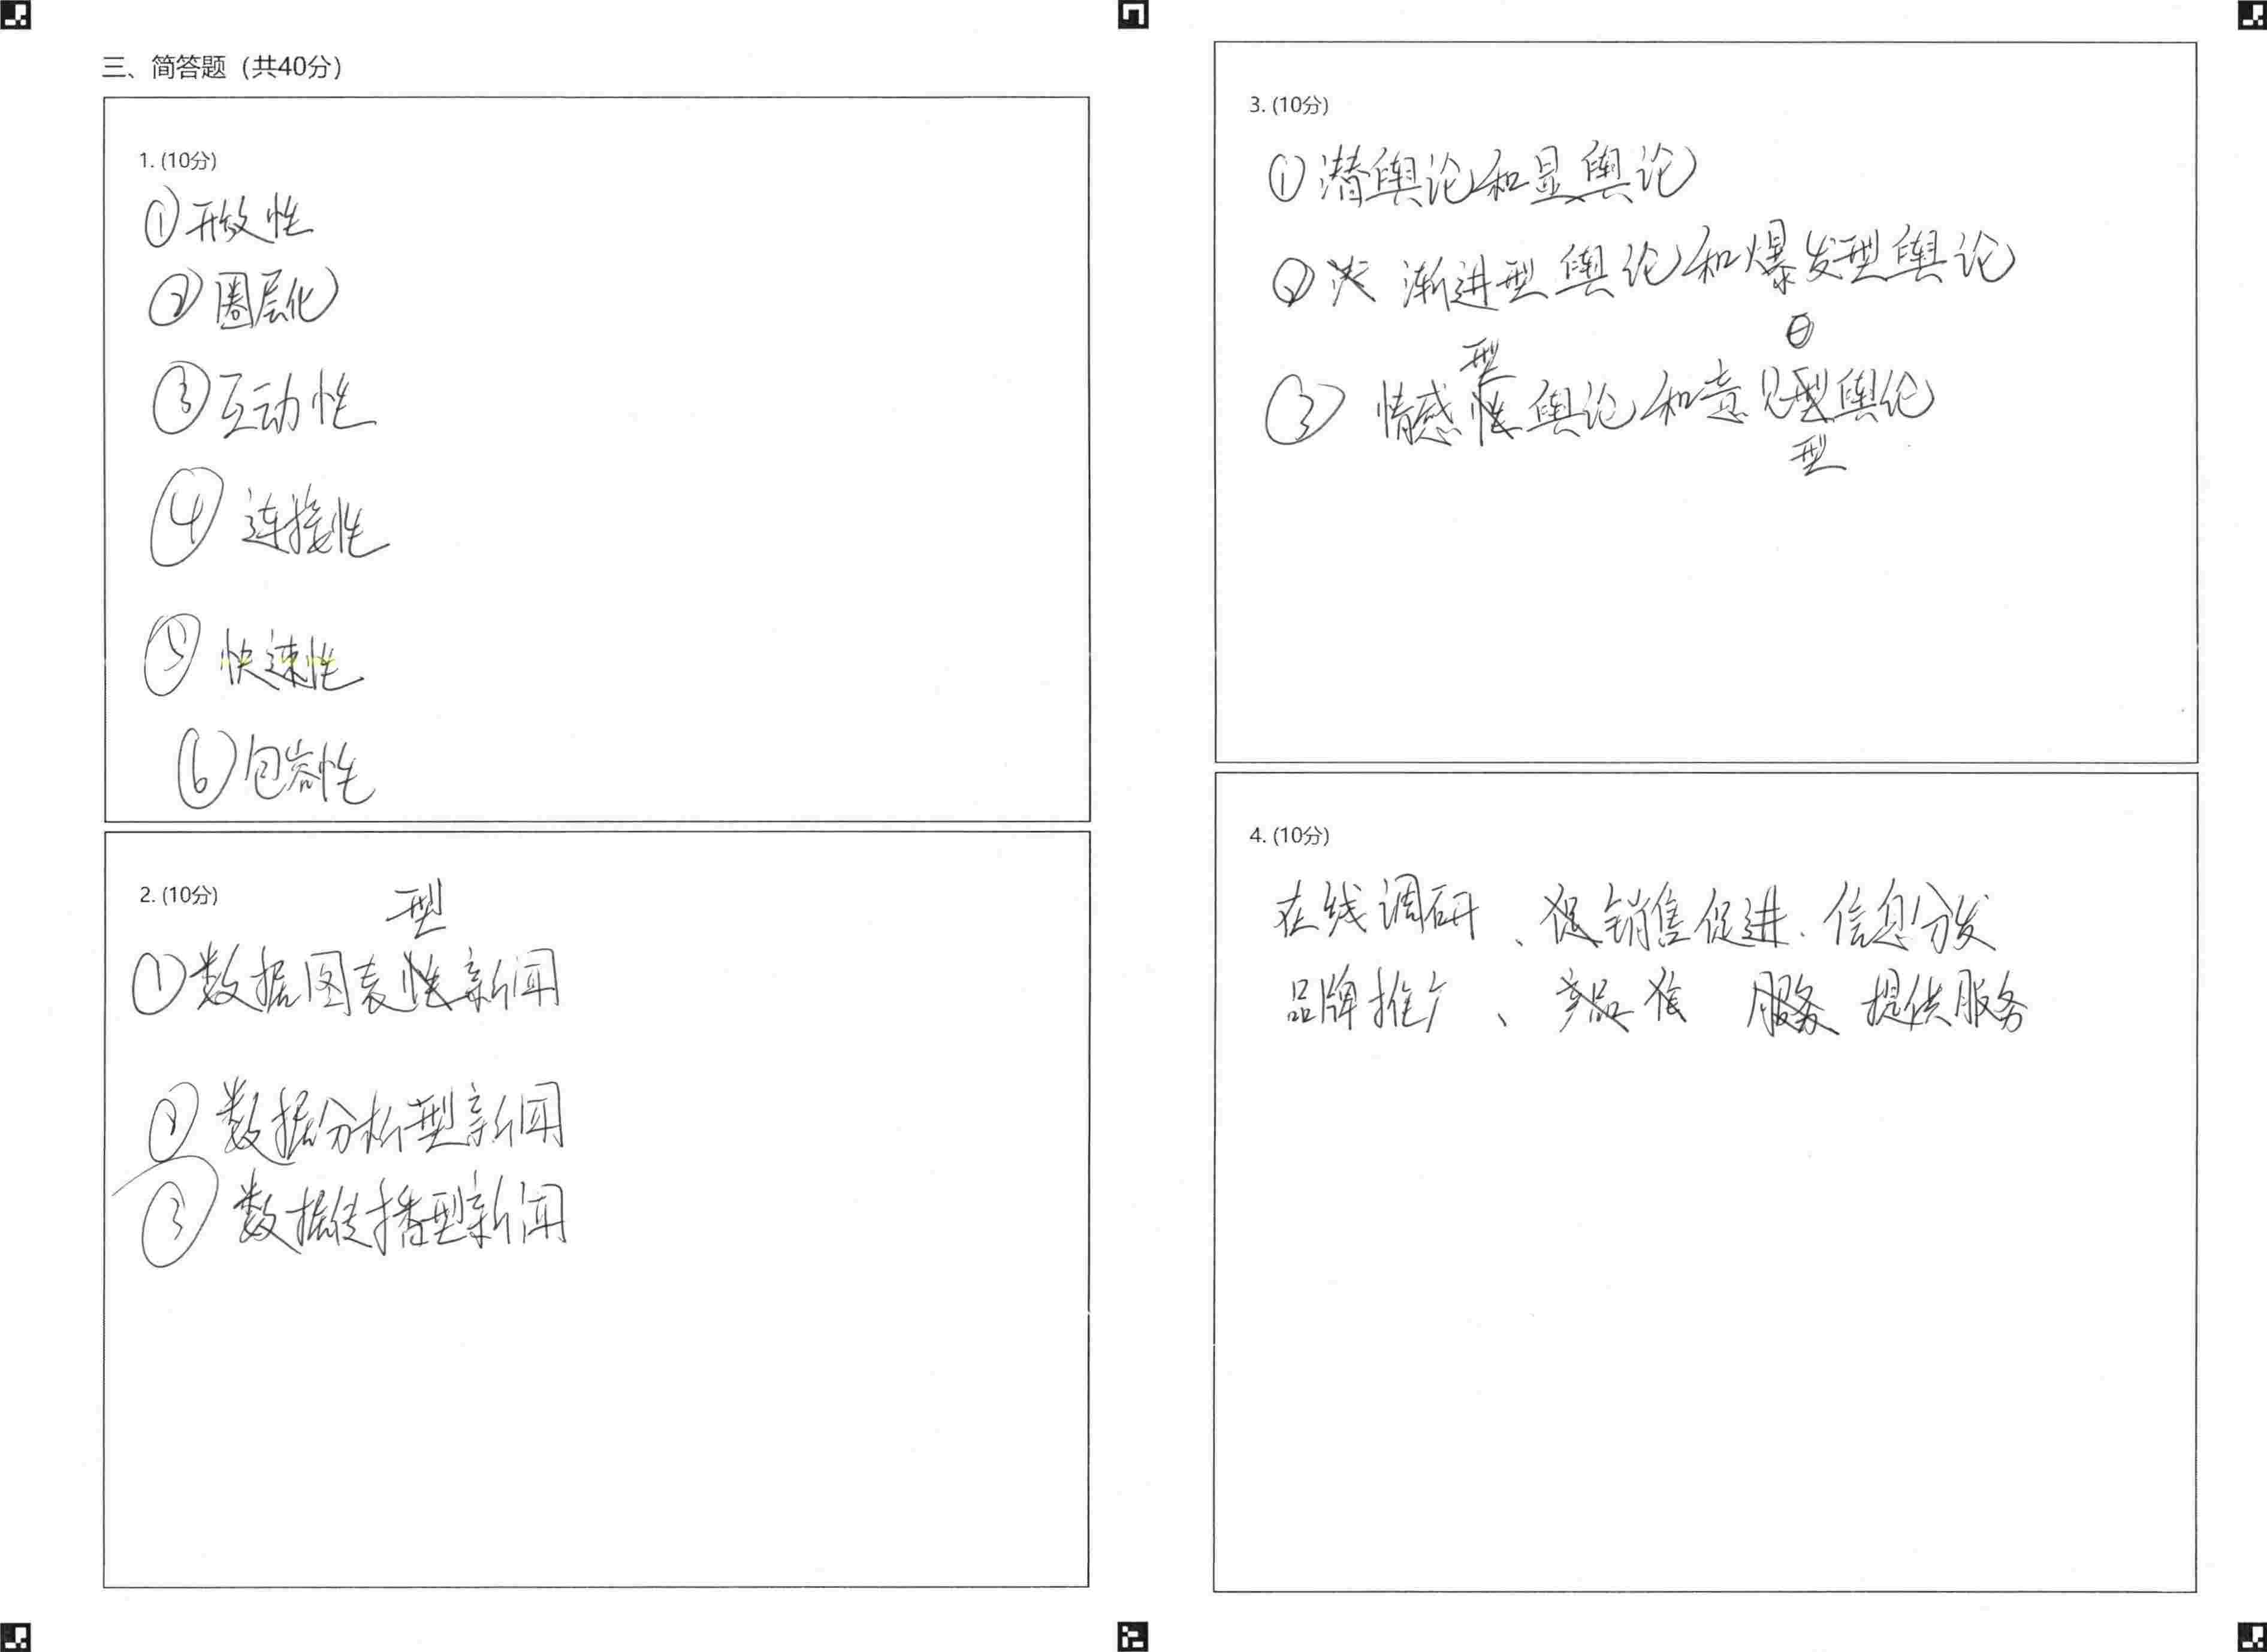 三、简答题（共40分）
1. (10分)
①开放性
②圈层化
③互动性
④连接性
⑤快速性
⑥包容性
2. (10分)
①数据图表型新闻
②数据分析型新闻
③数据传播型新闻
3. (10分)
①潜舆论和显舆论
②渐进型舆论和爆发型舆论
③情感型舆论和意见型舆论
4. (10分)
在线调研、销售促进、信息分发
品牌推广、提供服务